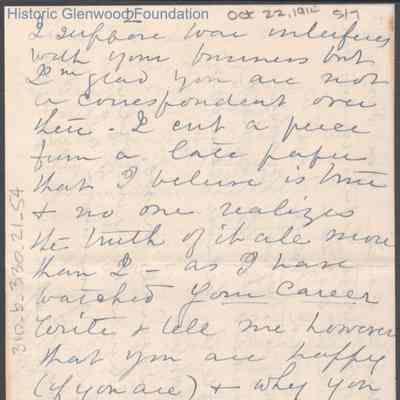 Historic Glenwood Foundation
2
Oct 22, 1914
5/7
I suppose war interferes
with your business but
I'm glad you are not
a correspondent over
there - I cut a piece
from a late paper
that I believe is true
& no one realizes
the truth of it all more
than I - as I have
watched your career
Write & tell me however
that you are happy
(if you are) & why you
310.B.330.21_54